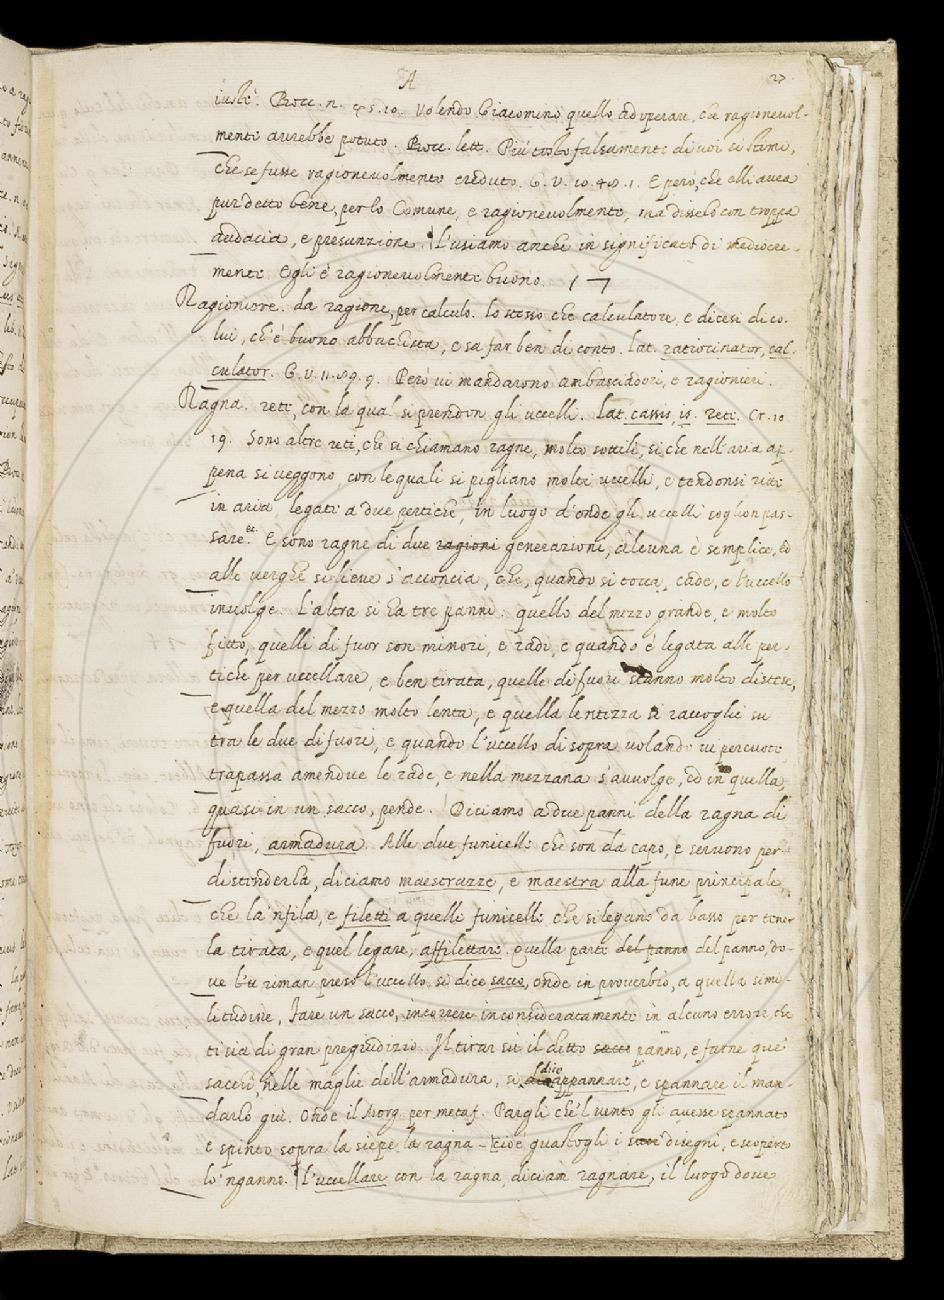 A
27
iuste. Bocc. n. 45. 10. Volendo Giacomino quello adoperare, che ragioneuol-
mente aurebbe potuto. Bocc. lett. Più tosto falsamente di uoi si stimi,
che se fusse ragioneuolmente creduto. G. V. 10. 1. E però, che elli auea
pur detto bene, per lo Comune, e ragioneuolmente, ma disselo con troppa
audacia, e presunzione. L'usiamo anche in significato di mediocre-
mente. Egli è ragioneuolmente buono.
Ragioniere. da ragione, per calculo. lo stesso che calculatore, e dicesi di co-
lui, ch'è buono abbachista, e sa far ben di conto. lat. ratiocinator, cal-
culator. G. V. 11. 89. 9. Però ui mandarono ambasciadori, e ragionieri.
Ragna. rete, con la qual si prendon gli uccelli. lat. cassis, is. rete. Cr. 10
19. Sono altre reti, che si chiamano ragne, molto sottili, si che nell'aria ap-
pena si ueggono, con le quali si pigliano molti uccelli, e tendonsi ritte
in aria, legate a due pertiche, in luogo d'onde gli uccelli soglion pas-
sare. et. E sono ragne di due ragioni generazioni, alcuna è semplice, ed
alle uerghe si lieue s'acconcia, che, quando si tocca, cade, e l'uccello
inuolge. L'altra si ha tre panni. quello del mezzo grande, e molto
fitto, quelli di fuor son minori, e radi, e quando è legata alle per-
tiche per uccellare, e ben tirata, quelle di fuori stanno molto distese,
e quella del mezzo molto lenta, e quella lentezza si raccoglie su
tra le due di fuori, e quando l'uccello di sopra uolando ui percuote
trapassa amendue le rade, e nella mezzana s'auuolge, ed in quella,
quasi in un sacco, pende. Diciamo a due panni della ragna di
fuori, armadura. Alle due funicelle che son da capo, e seruono per
distenderla, diciamo maestrazze, e maestra alla fune principale,
che la 'nfila, e filetti a quelle funicelle che si legano da basso per tener
la tirata, e quel legare, affilettare. quella parte del panno del panno, do-
ue riman preso l'uccello, si dice sacco, onde in prouerbio, a quella simi-
litudine, Fare un sacco, incorrere inconsideratamente in alcuno errore, che
ti sia di gran pregiudizio. Il tirar su il detto sacco panno, e farne que'
sacchi nelle maglie dell'armadura, si dice appannare, e spannare il man-
darlo giù. Onde il Morg. per metaf. Pargli che 'l uento gli auesse spannato
E spinto sopra la siepe la ragna cioè guastogli i suoi disegni, e scoperto
lo 'nganno. L'uccellare con la ragna, diciam ragnare, il luogo doue